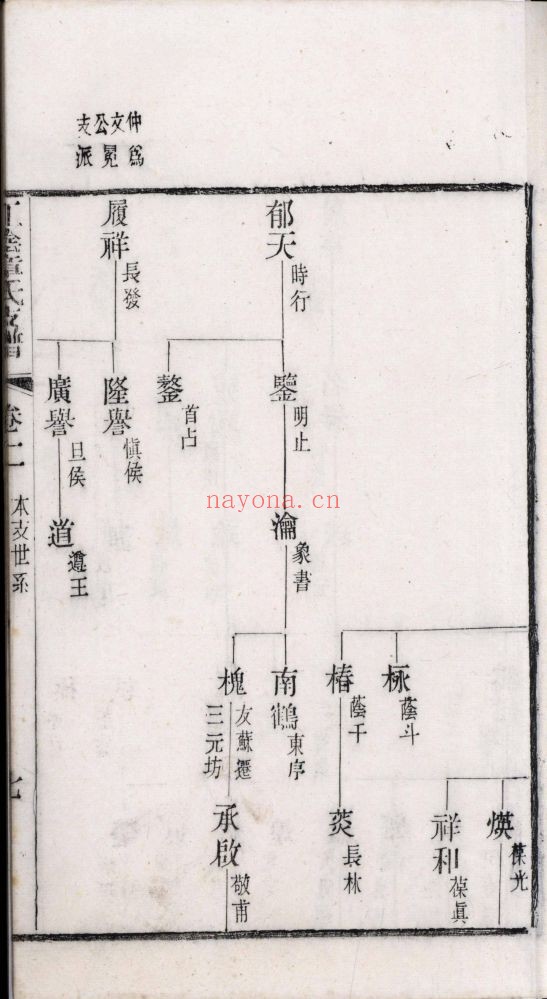 仲爲
文冕
公
支派
郁天 時行
履祥 長發
鑒 明止
鏊 首占
隆譽 愼侯
廣譽 旦侯
瀹 象書
道 遵王
椿 蔭千
南鶴 東序
槐 友蘇遷
三元坊
煐 葆光
祥和 葆眞
炎 長林
承啟 敬甫
氏支譜
卷十一
本支世系
七
nayona.cn